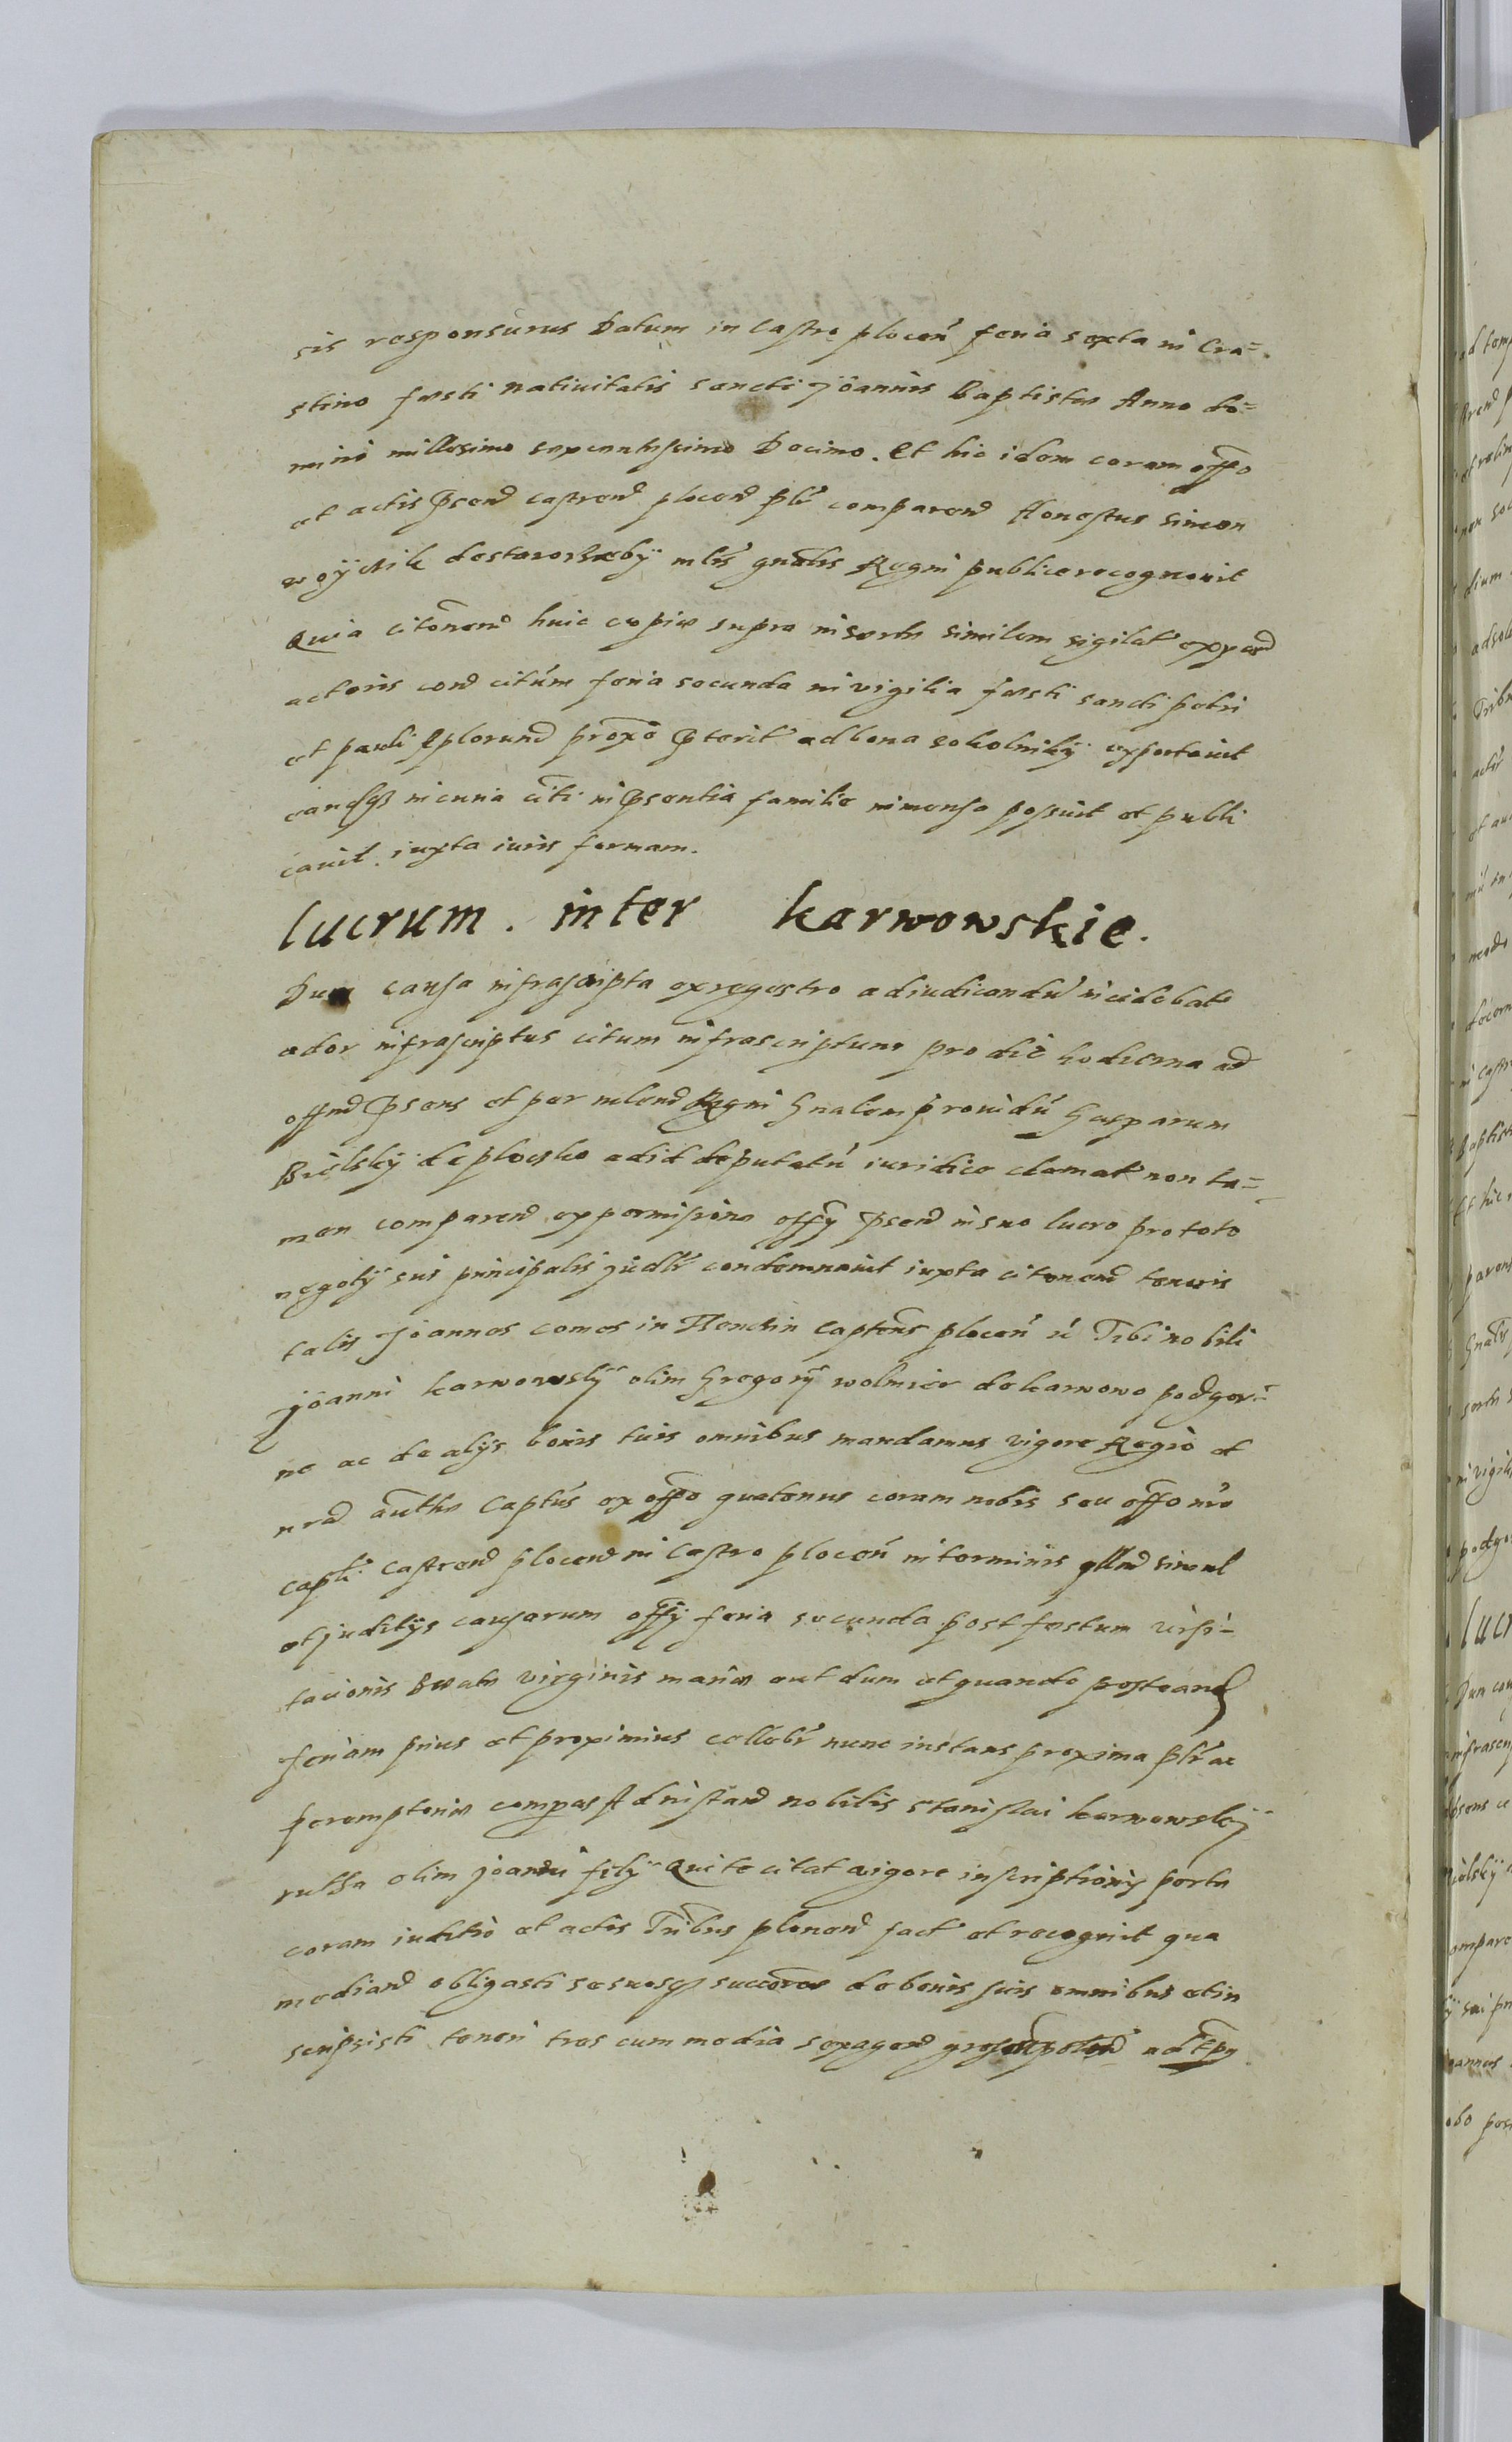 sis responsurus Datum in Castro plocen̄ feria sexta in Cra=
stino festi Nativitatis Sancti Joannis Baptistæ Anno do=
mini millesimo sexcentesimo Decimo. Et hic idem coram offo
et actis psend castrend plocend plr comparend Honestus Simeon
woÿcik de starorzeby mlis gnalis Regni publice recognovit
Quia citonem huic copiæ supra insertæ similem sigilat ex parte
actoris cond citum feria secunda in vigilia festi sancti petri
et pauli Aplorum proxe pterit ad bona sokolniky exportavit
eandq in curia citi in psentia familie in mensa possuit et publi
cavit. iuxta iuris formam.
lucrum. inter karwowskie.
Dum causa infrascripta ex regestro ad iudicandū incidebat
actor infrascriptus citum infrascriptum pro die hodierna ad
offnd psens et per mlend Regni Gnalem providū Gasparum
Bielsky de plocsko ad id deputatū iuridice clamat non ta=
men comparend ex permissione offy psend in suo lucro pro toto
negotÿ sui principalis judlr condemnavit iuxta citonend tenoris
talis Joannes comes in Tenchin captens plocen̄ ec Tibi nobili
Joanni karwowskÿ olim Gregorÿ wolmier de karwowo podgor=
ne ac de alÿs bonis tuis omnibus mandamus vigore Regio et
nrad authte Captus ex offo quatenus coram nobis seu offo nro
captli castrend plocend in Castro plocen̄ in terminis qllnd simul
et juditÿs causarum offÿ feria secunda post festum visi=
tacionis Beatæ virginis mariæ aut dum et quando post eand
feriam prius et proximius cellebr nunc instans proxima plr ac
peremptoriæ compareas Ad instand nobilis Stanislai karwowskÿ
rutha olim joanni filÿ Qui te citat vigore inscriptionis per te
coram iuditio et actis Tribus plenend fact et recognit qua
mediand obligasti se suosq succores de bonis suis omnibus et in
scripsisti teneri tres cum media sexagend grosor polnd ad tpg